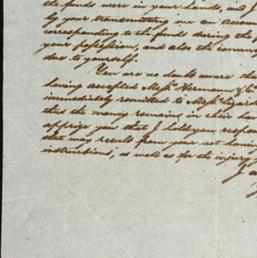 the funds were in your hands, and I
by your transmitting me an account
corresponding to the funds during the
your possession, and also the commi
due to yourself.
You are no doubt aware that
having accepted Messrs. Hermann & Co
immediately remitted to Messrs.
that the money remains in their han
apprize you that I hold you respon
that may result from your not having
instructions, as well as for the injury
I a